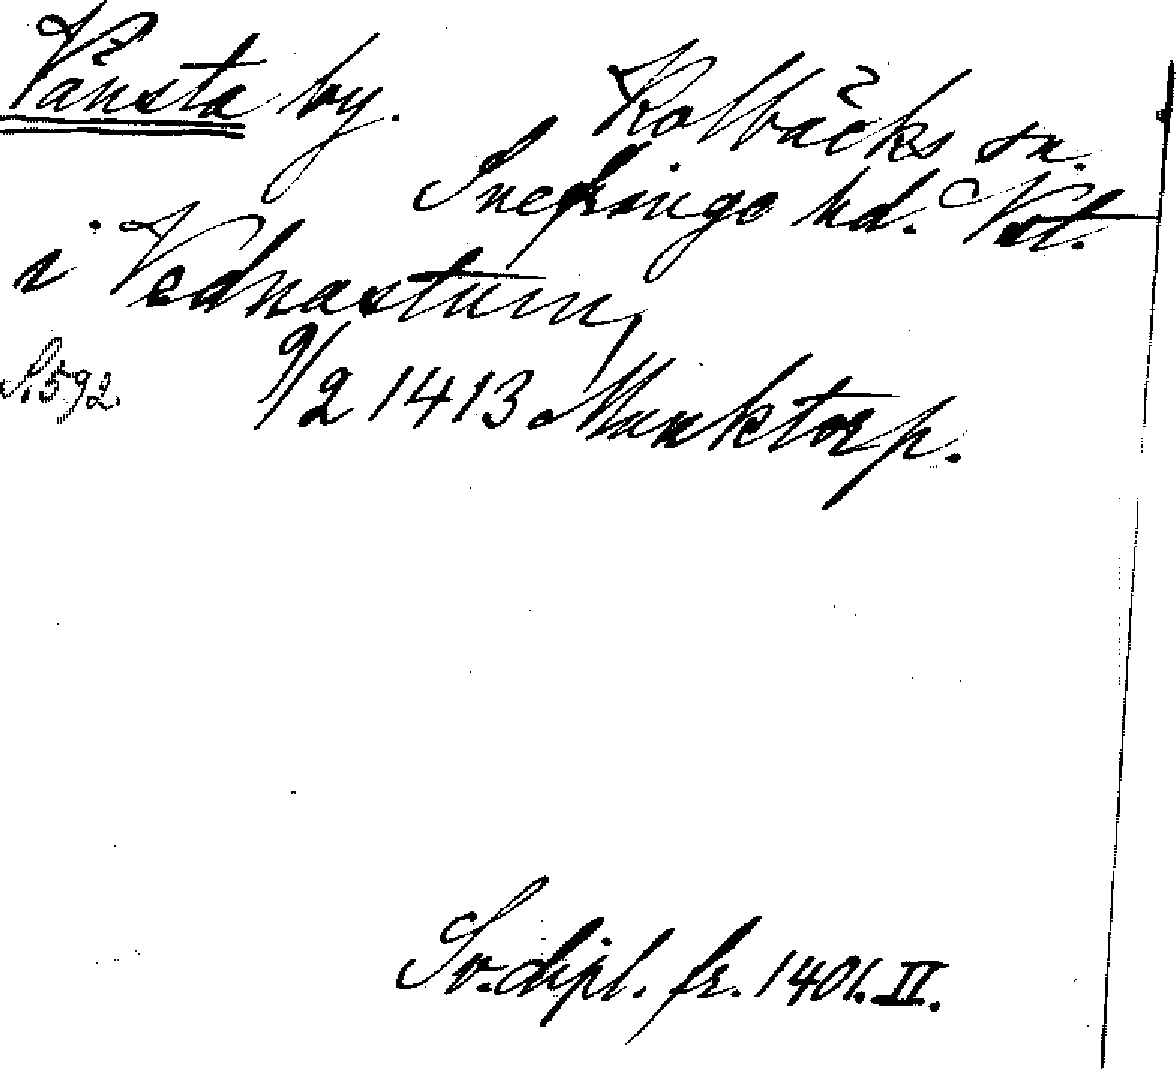 Vänsta by. Kolbäcks sn.
Snefringe hd. Vstl.
i Vednastum,
S. 592. 9/2 1413 Munktorp.
Sv. dipl. fr. 1401. II.